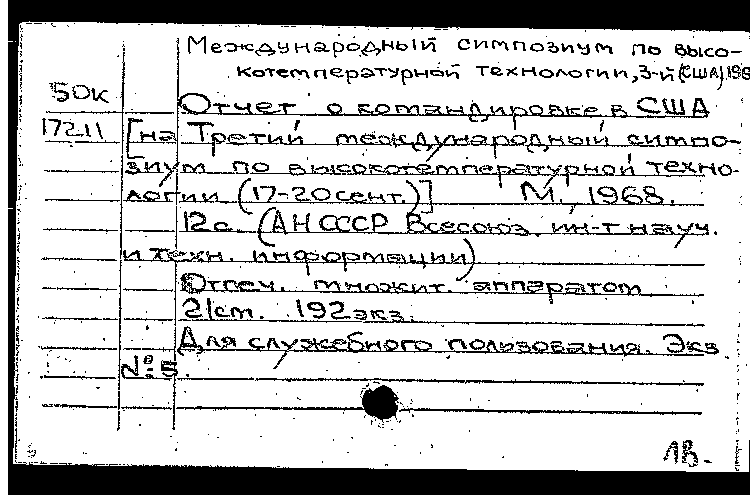 Международный симпозиум по высо-
котемпературной технологии, 3-й (США) 196
50к
Отчет о командировке в США
172-11 [на Третий международный симпо-
зиум по высокотемпературной техно-
логии (17-20 сент.)] М., 1968.
12 с. (АН СССР Всесоюз. ин-т науч.
и техн. информации)
Отпеч. множит. аппаратом
21 см. 192 экз.
Для служебного пользования. Экз.
№: 5.
1В.